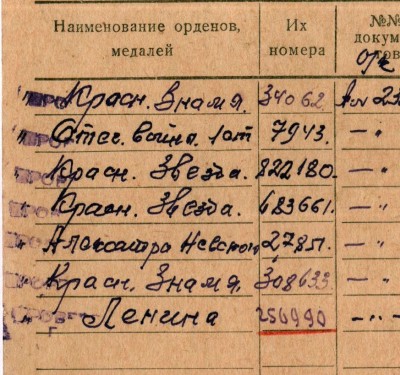 Наименование орденов, медалей Их номера №№ докум
" Красн. Знамя. 34062.
" Отеч. война. 1 от 7943. — "
" Красн. Звезда. 822180. — "
" Красн. Звезда. 683661. — "
" Александра Невского 2,785. — "
" Красн. Знамя 308633. — "
" Ленина 256990 — " —